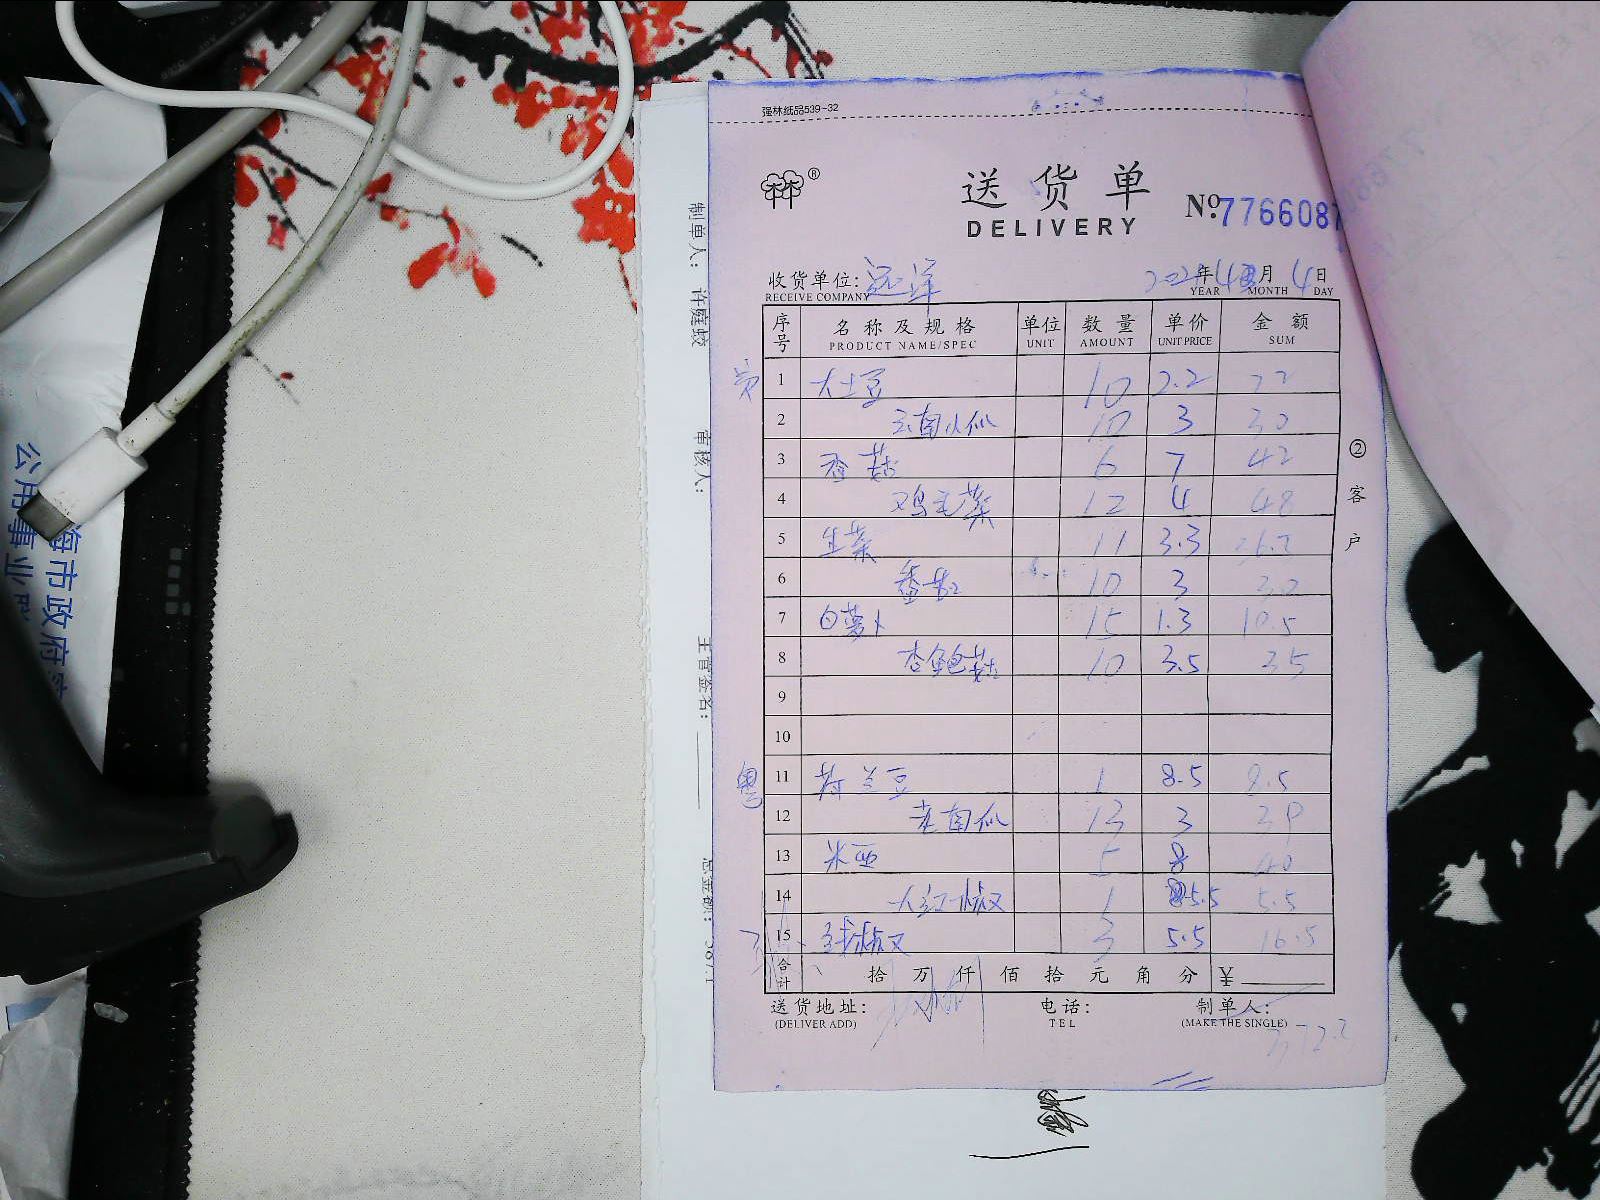 强林纸品539-32
®
送货单
DELIVERY
No.7766087
收货单位: 远洋
RECEIVE COMPANY
年 月 4日
YEAR MONTH DAY
序号 名称及规格 单位 数量 单价 金额
PRODUCT NAME/SPEC UNIT AMOUNT UNIT PRICE SUM
1 大土豆 10 2.2 22
2 云南小瓜 10 3 30
3 香菇 6 7 42
4 鸡毛菜 12 4 48
5 生菜 11 3.3 36.3
6 番茄 10 3 30
7 白萝卜 15 1.3 10.5
8 杏鲍菇 10 3.5 35
9
10
粤 11 荷兰豆 1 8.5 8.5
12 老南瓜 13 3 39
13 米西 5 8 40
14 大红椒 1 5.5 5.5
15 球椒 3 5.5 16.5
合计 拾 万 仟 佰 拾 元 角 分 ¥
送货地址: 电话: 制单人:
(DELIVER ADD) TEL (MAKE THE SINGLE)
②客户
制单人: 许庭蛟
审核人:
主管签名:
总金额:
海市政府
公用事业